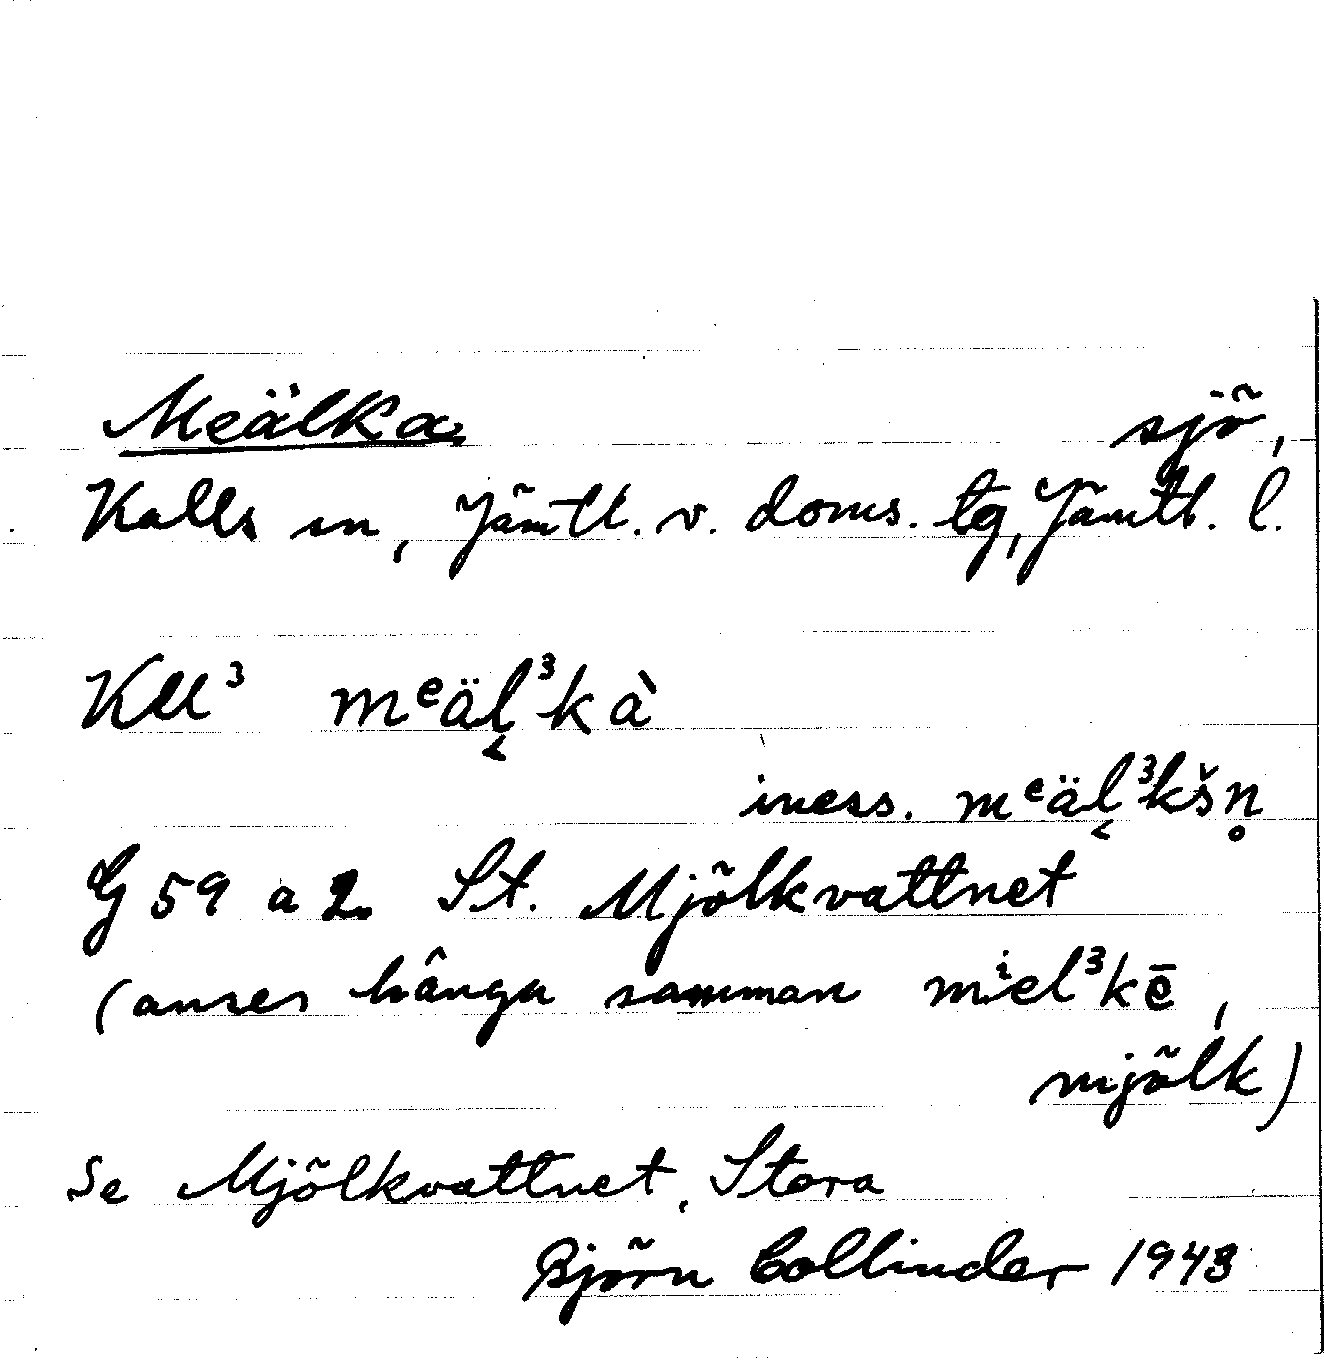 Meälka sjö,
Kalls sn, Jämtl. v. doms. tg, Jämtl. l.
Kll³ mᵉäl̬³kà
iness. mᵉäl̬³kšn̥
G 59 a 2. St. Mjölkvattnet
(anses hänga samman mⁱel³kē,
mjölk)
Se Mjölkvattnet, Stora
Björn Collinder 1943